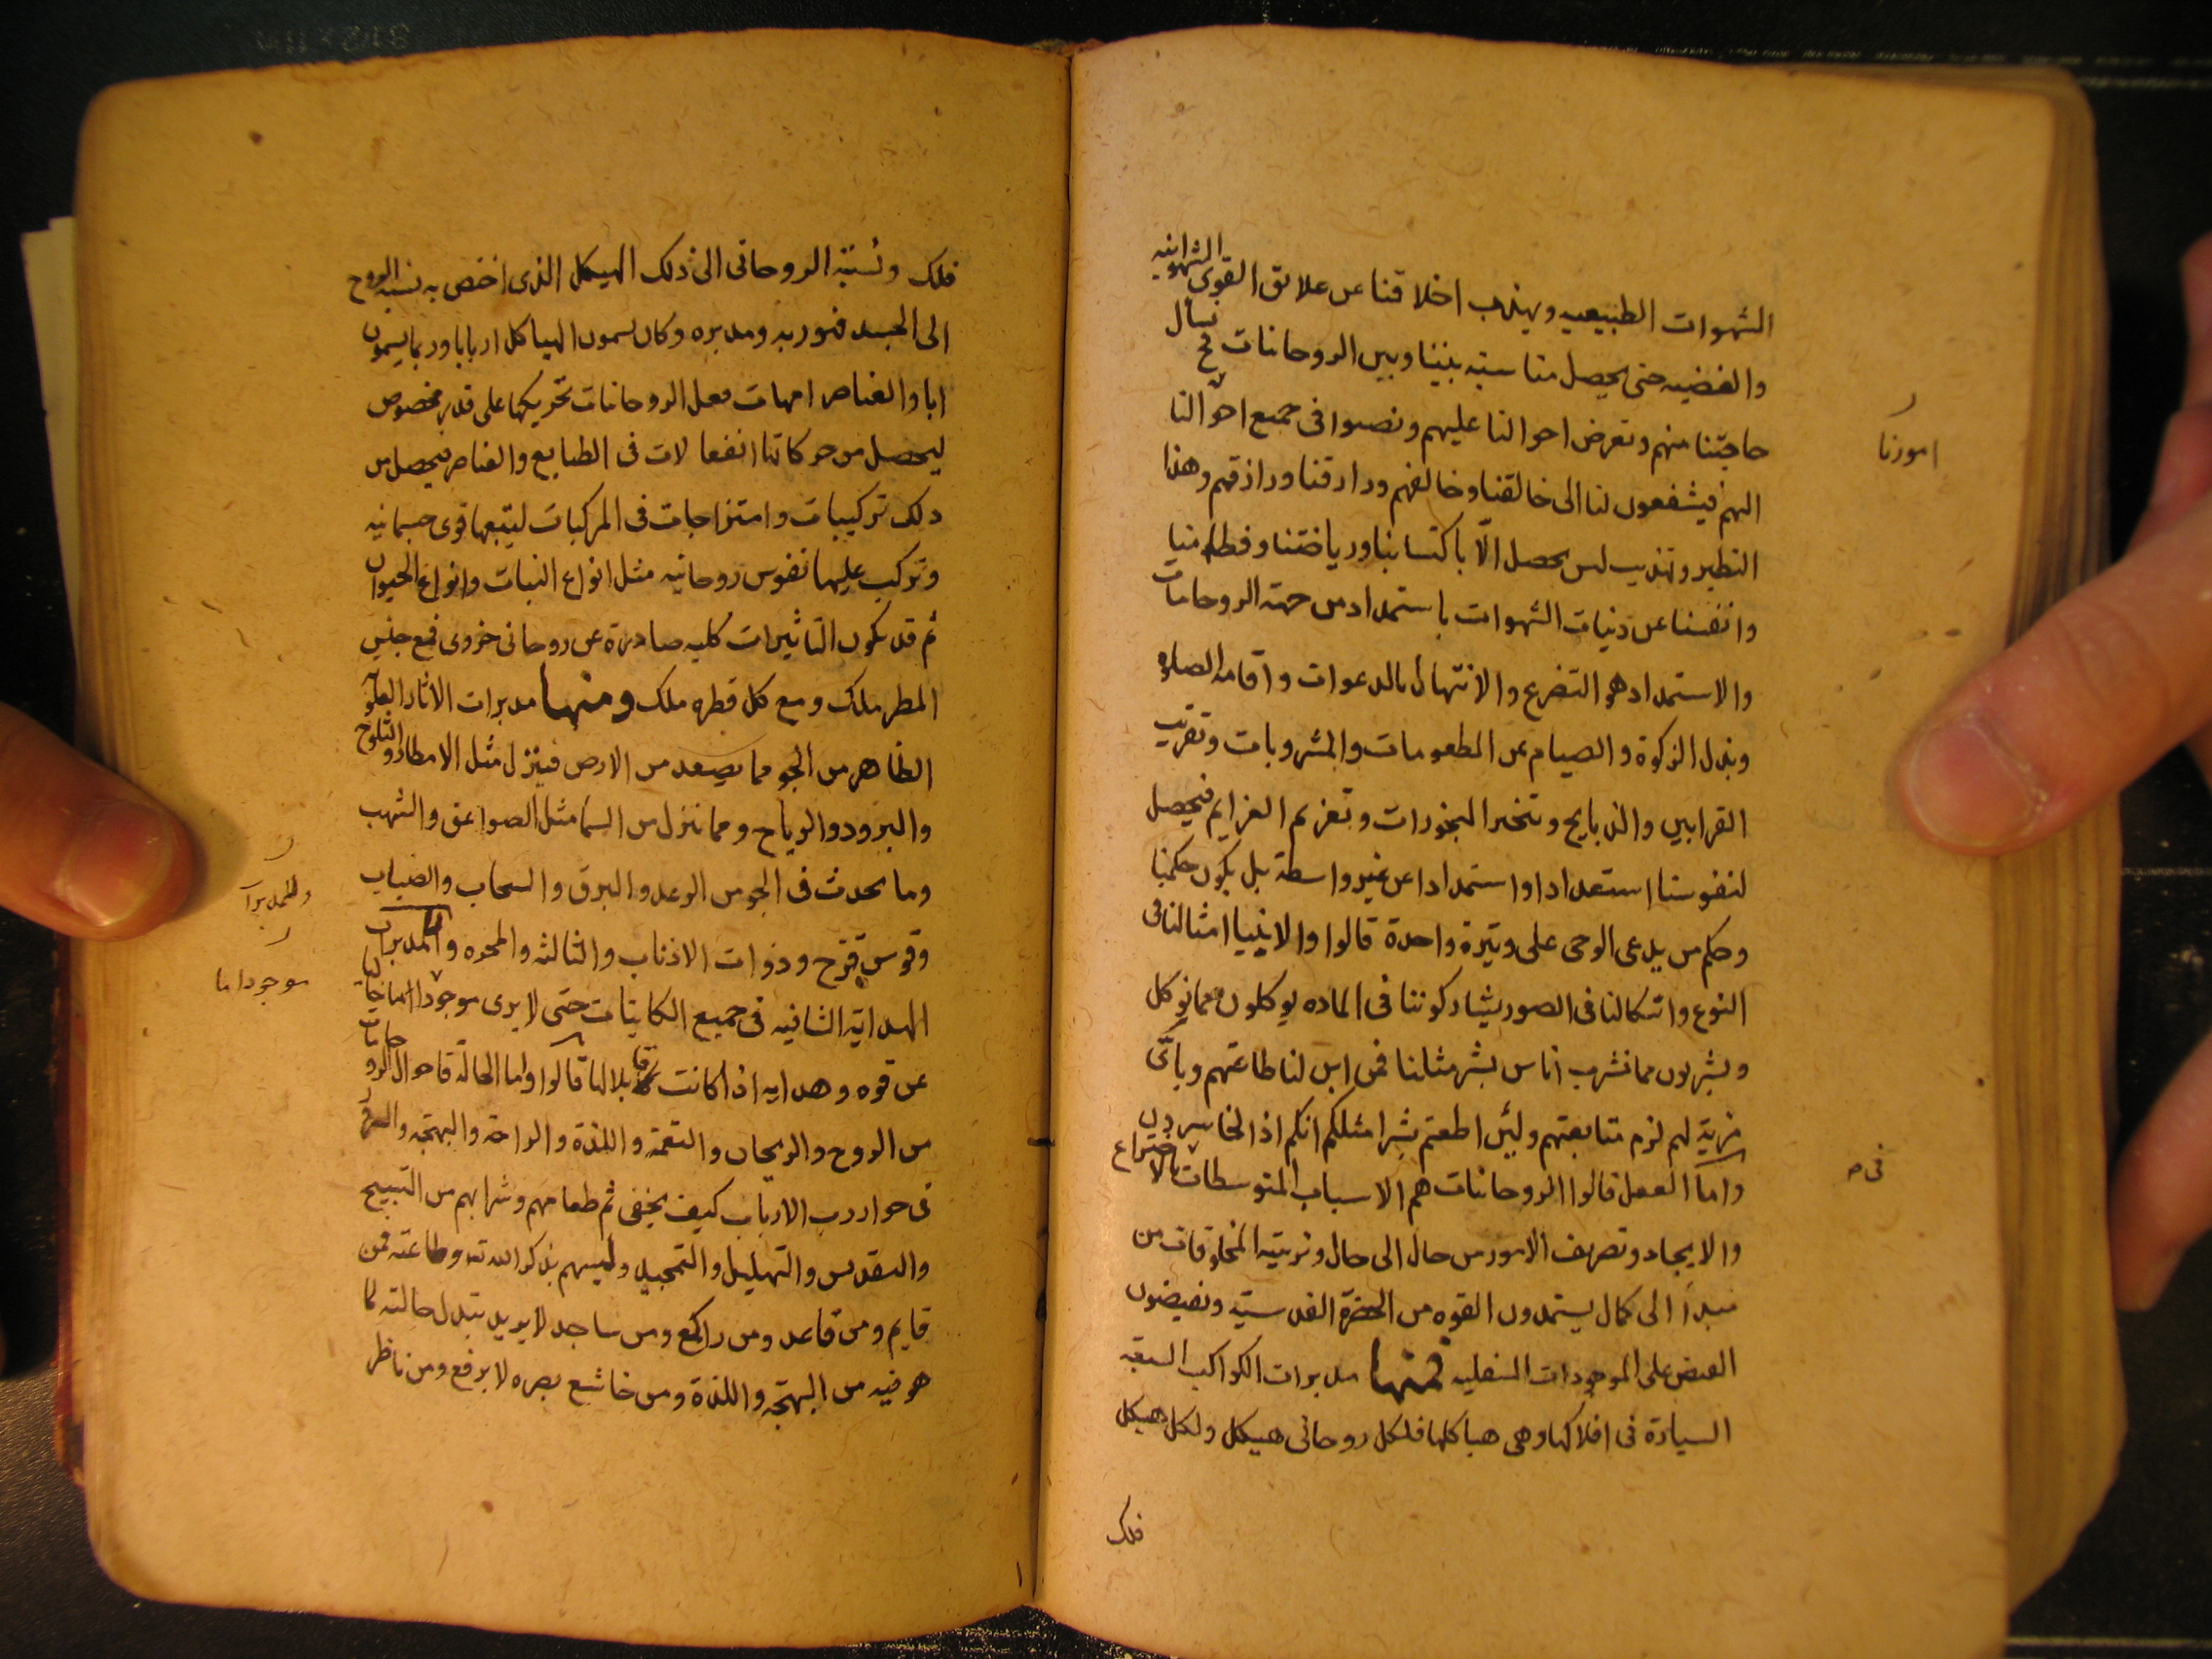 الشهوات الطبيعيه ويهذب اخلاقنا عن علايق القوى الشهوانيه
والغضبيه حتى يحصل مناسبة بيننا وبين الروحانات فح نسأل
حاجتنا منهم وتعرض احوالنا عليهم ونصبوا فى جميع احوالنا
امورنا
الهم فيشفعون لنا الى خالقنا وخالقهم ورازقنا ورازقهم وهذا
التطهير وتهذيب ليس يحصل الّا باكتسابنا ورياضتنا وفطامنا
وانفسنا عن دنيات الشهوات باستمداد من جهة الروحانات
والاستمداد هو التضرع والابتهال بالدعوات واقامه الصلوه
وبذل الزكوة والصيام عن المطعومات والمشروبات وتقريب
القرابين والذبايح وتبخير البخورات وتعزيم العزايم فيحصل
لنفوسنا استعداد او استمدادا عن غير واسطة بل يكون حكمنا
وحكم من يدعى الوحى على وتيرة واحدة قالوا والانبيا امثالنا فى
النوع واشكالنا فى الصور يشاركوننا فى الماده يوكلون مما نوكل
ويشربون مما نشرب اناس بشر مثلنا فمن اين لنا طاعتهم وبأىّ
مزية لهم لزم متابعتهم ولئن اطعتم بشرا مثلكم انكم اذا لخاسرون
واما الفعل قالوا الروحانات هم الاسباب المتوسطات بالاختراع
فى ص
والايجاد وتصريف الامور من حال الى حال وتربية المخلوقات من
مبدأ الى كمال يستمدون القوه من الحضرة القدسيّه ويفيضون
الفيض على الموجودات السفليه فمنها مدبرات الكواكب السبعه
السيارة فى افلاكها وهى هياكلها فلكل روحانى هيكل ولكل هيكل
فلك
فلك ونسبة الروحانى الى ذلك الهيكل الذى اختص به نسبة الروح
الى الجسد فهو ربه ومدبره وكان يسمون الهياكل اربابا وربما يسمون
ابا والعناصر امهات ففعل الروحانات تحريكها على قدر مخصوص
ليحصل من حركاتها انفعالات فى الطبايع والعناصر فيحصل من
ذلك تركيبات وامتزاجات فى المركبات ليتبعها قوى جسمانيه
وتركب عليها نفوس روحانيه مثل انواع النبات وانواع الحيوان
ثم قد يكون التاثيرات كليه صادرة عن روحانى جزوى فمع جنس
المطر ملك ومع كل قطره ملك ومنها مدبرات الاثار العلويّه
الظاهر من الجو مما يصعد من الارض فينزل مثل الامطار والثلوج
والبرود والرياح ومما ينزل من السما مثل الصواعق والشهب
وما يحدث فى الجو من الرعد والبرق والسحاب والضباب
وقوس قزح وذوات الاذناب والثالثه والمجره والمدبرات
الهداية الشافيه فى جميع الكاينات حتى لا يرى موجودا ما خاليا
موجودا ما
عن قوه وهدايه اذا كانت قابلا لها قالوا واما الحالة فاحوال الروحانات
من الروح والريحان والنعمة واللذة والراحة والبهجه والسرور
فى جوار رب الارباب كيف يخفى ثم طعامهم وشرابهم من التسبيح
والتقديس والتهليل والتمجيد وانيسهم بذكر الله تعـ وطاعته فمن
قايم ومن قاعد ومن راكع ومن ساجد لا يريد تبدل حالته لما
هو فيه من البهجة واللذة ومن خاشع بصره لا يرفع ومن ناظر